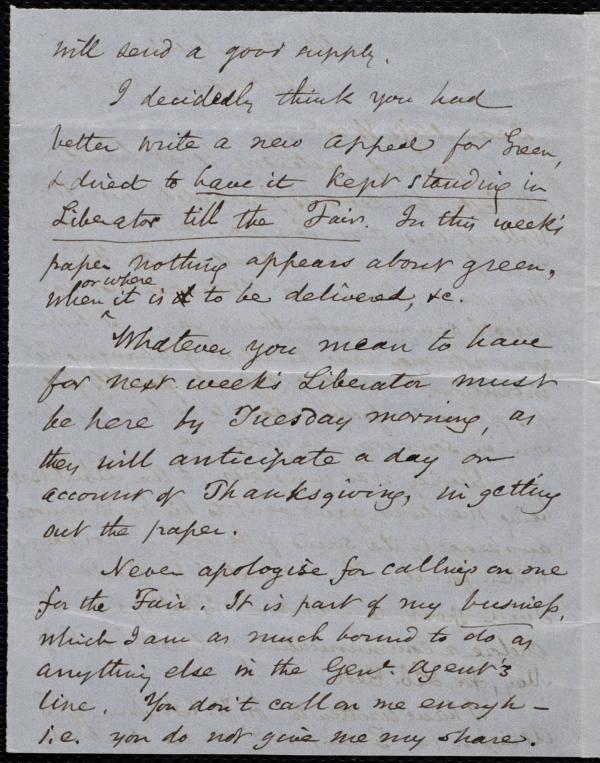 will send a good supply.
I decidedly think you had
better write a new appeal for Green,
& direct to have it kept standing in
Liberator till the Fair. In this week's
paper nothing appears about green,
or where
when it is to be delivered, &c.
Whatever you mean to have
for next week's Liberator must
be here by Tuesday morning, as
they will anticipate a day on
account of Thanksgiving, in getting
out the paper.
Never apologise for calling on me
for the Fair. It is part of my business,
which I am as much bound to do, as
anything else in the Genl. Agent's
line. You don't call on me enough –
i.e. you do not give me my share.